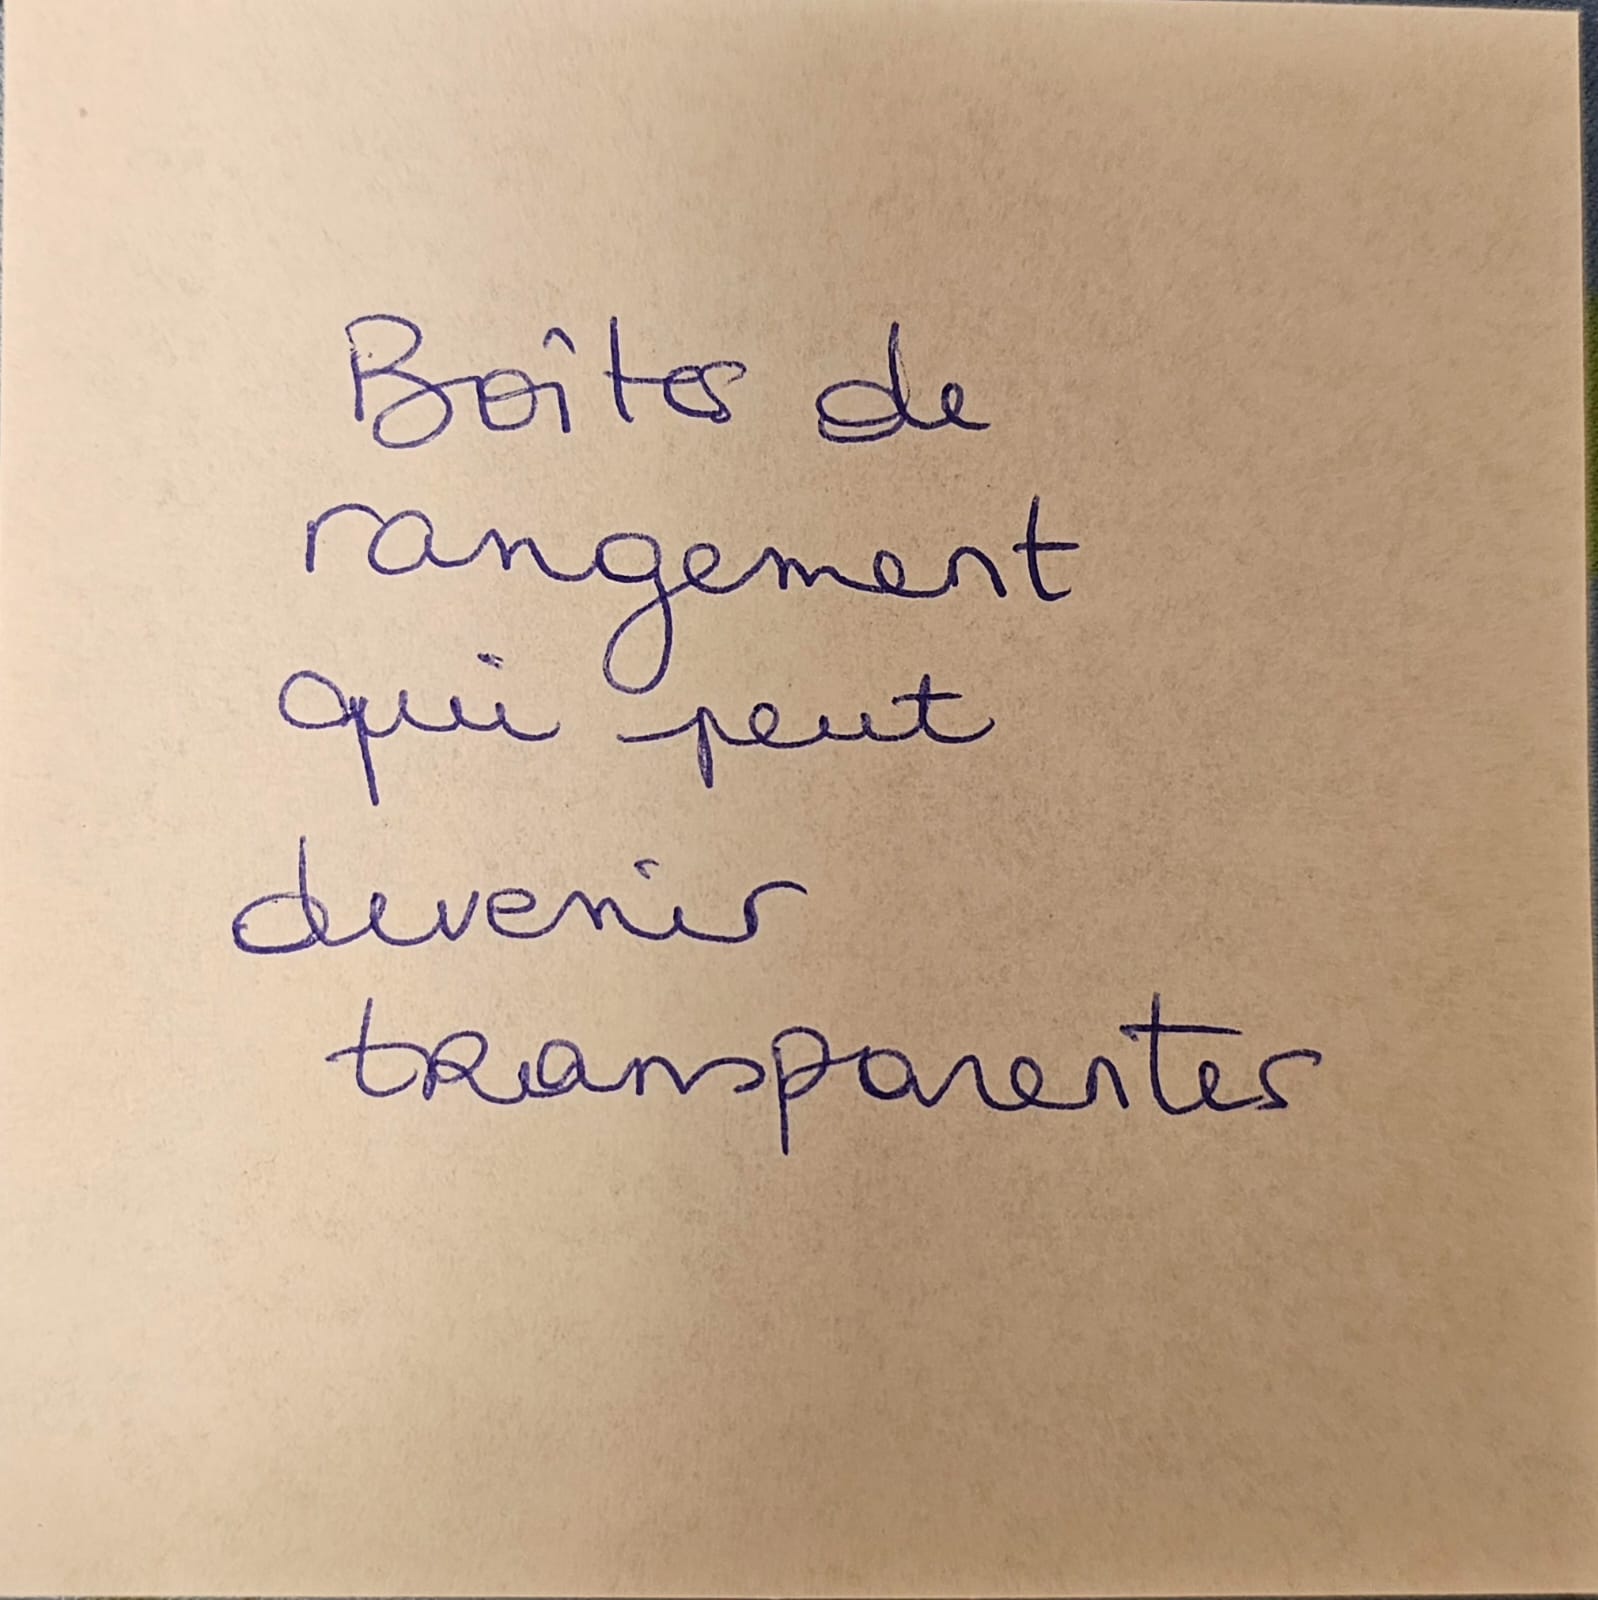 Boîtes de
rangement
qui peut
devenir
transparentes